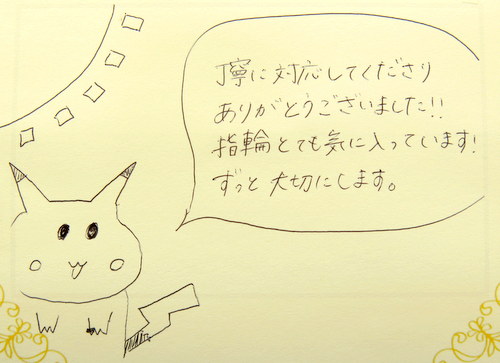 丁寧に対応してくださり
ありがとうございました!!
指輪とても気に入っています!
ずっと大切にします。